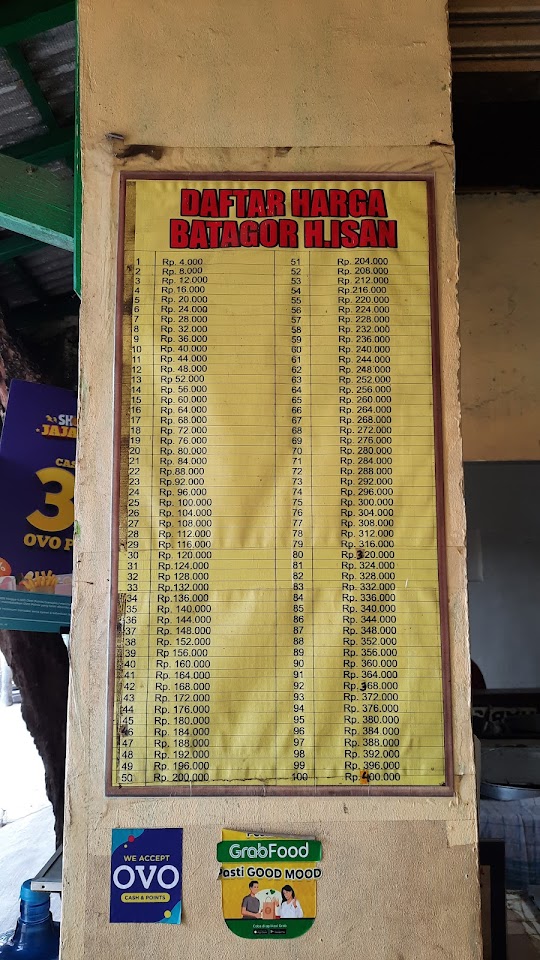 DAFTAR HARGA
BATAGOR H.ISAN
1 Rp. 4.000 51 Rp. 204.000
2 Rp. 8.000 52 Rp. 208.000
3 Rp. 12.000 53 Rp. 212.000
4 Rp.16.000 54 Rp.216.000
5 Rp. 20.000 55 Rp. 220.000
6 Rp. 24.000 56 Rp. 224.000
7 Rp. 28.000 57 Rp. 228.000
8 Rp. 32.000 58 Rp. 232.000
9 Rp. 36.000 59 Rp. 236.000
10 Rp. 40.000 60 Rp. 240.000
11 Rp. 44.000 61 Rp. 244.000
12 Rp. 48.000 62 Rp. 248.000
13 Rp.52.000 63 Rp. 252.000
14 Rp. 56.000 64 Rp. 256.000
15 Rp. 60.000 65 Rp. 260.000
16 Rp. 64.000 66 Rp. 264.000
17 Rp. 68.000 67 Rp. 268.000
18 Rp. 72.000 68 Rp. 272.000
19 Rp. 76.000 69 Rp. 276.000
20 Rp. 80.000 70 Rp. 280.000
21 Rp. 84.000 71 Rp. 284.000
22 Rp.88.000 72 Rp. 288.000
23 Rp.92.000 73 Rp. 292.000
24 Rp. 96.000 74 Rp. 296.000
25 Rp. 100.000 75 Rp. 300.000
26 Rp. 104.000 76 Rp. 304.000
27 Rp. 108.000 77 Rp. 308.000
28 Rp. 112.000 78 Rp. 312.000
29 Rp. 116.000 79 Rp. 316.000
30 Rp. 120.000 80 Rp. 320.000
31 Rp.124.000 81 Rp. 324.000
32 Rp. 128.000 82 Rp. 328.000
33 Rp. 132.000 83 Rp. 332.000
34 Rp.136.000 84 Rp. 336.000
35 Rp. 140.000 85 Rp. 340.000
36 Rp. 144.000 86 Rp. 344.000
37 Rp. 148.000 87 Rp. 348.000
38 Rp. 152.000 88 Rp. 352.000
39 Rp.156.000 89 Rp. 356.000
40 Rp. 160.000 90 Rp. 360.000
41 Rp. 164.000 91 Rp. 364.000
42 Rp. 168.000 92 Rp. 368.000
43 Rp. 172.000 93 Rp. 372.000
44 Rp. 176.000 94 Rp. 376.000
45 Rp. 180.000 95 Rp. 380.000
46 Rp. 184.000 96 Rp. 384.000
47 Rp. 188.000 97 Rp. 388.000
48 Rp. 192.000 98 Rp. 392.000
49 Rp. 196.000 99 Rp. 396.000
50 Rp. 200.000 100 Rp. 400.000
3
OVO P
WE ACCEPT
OVO
CASH & POINTS
GrabFood
Pasti GOOD MOOD